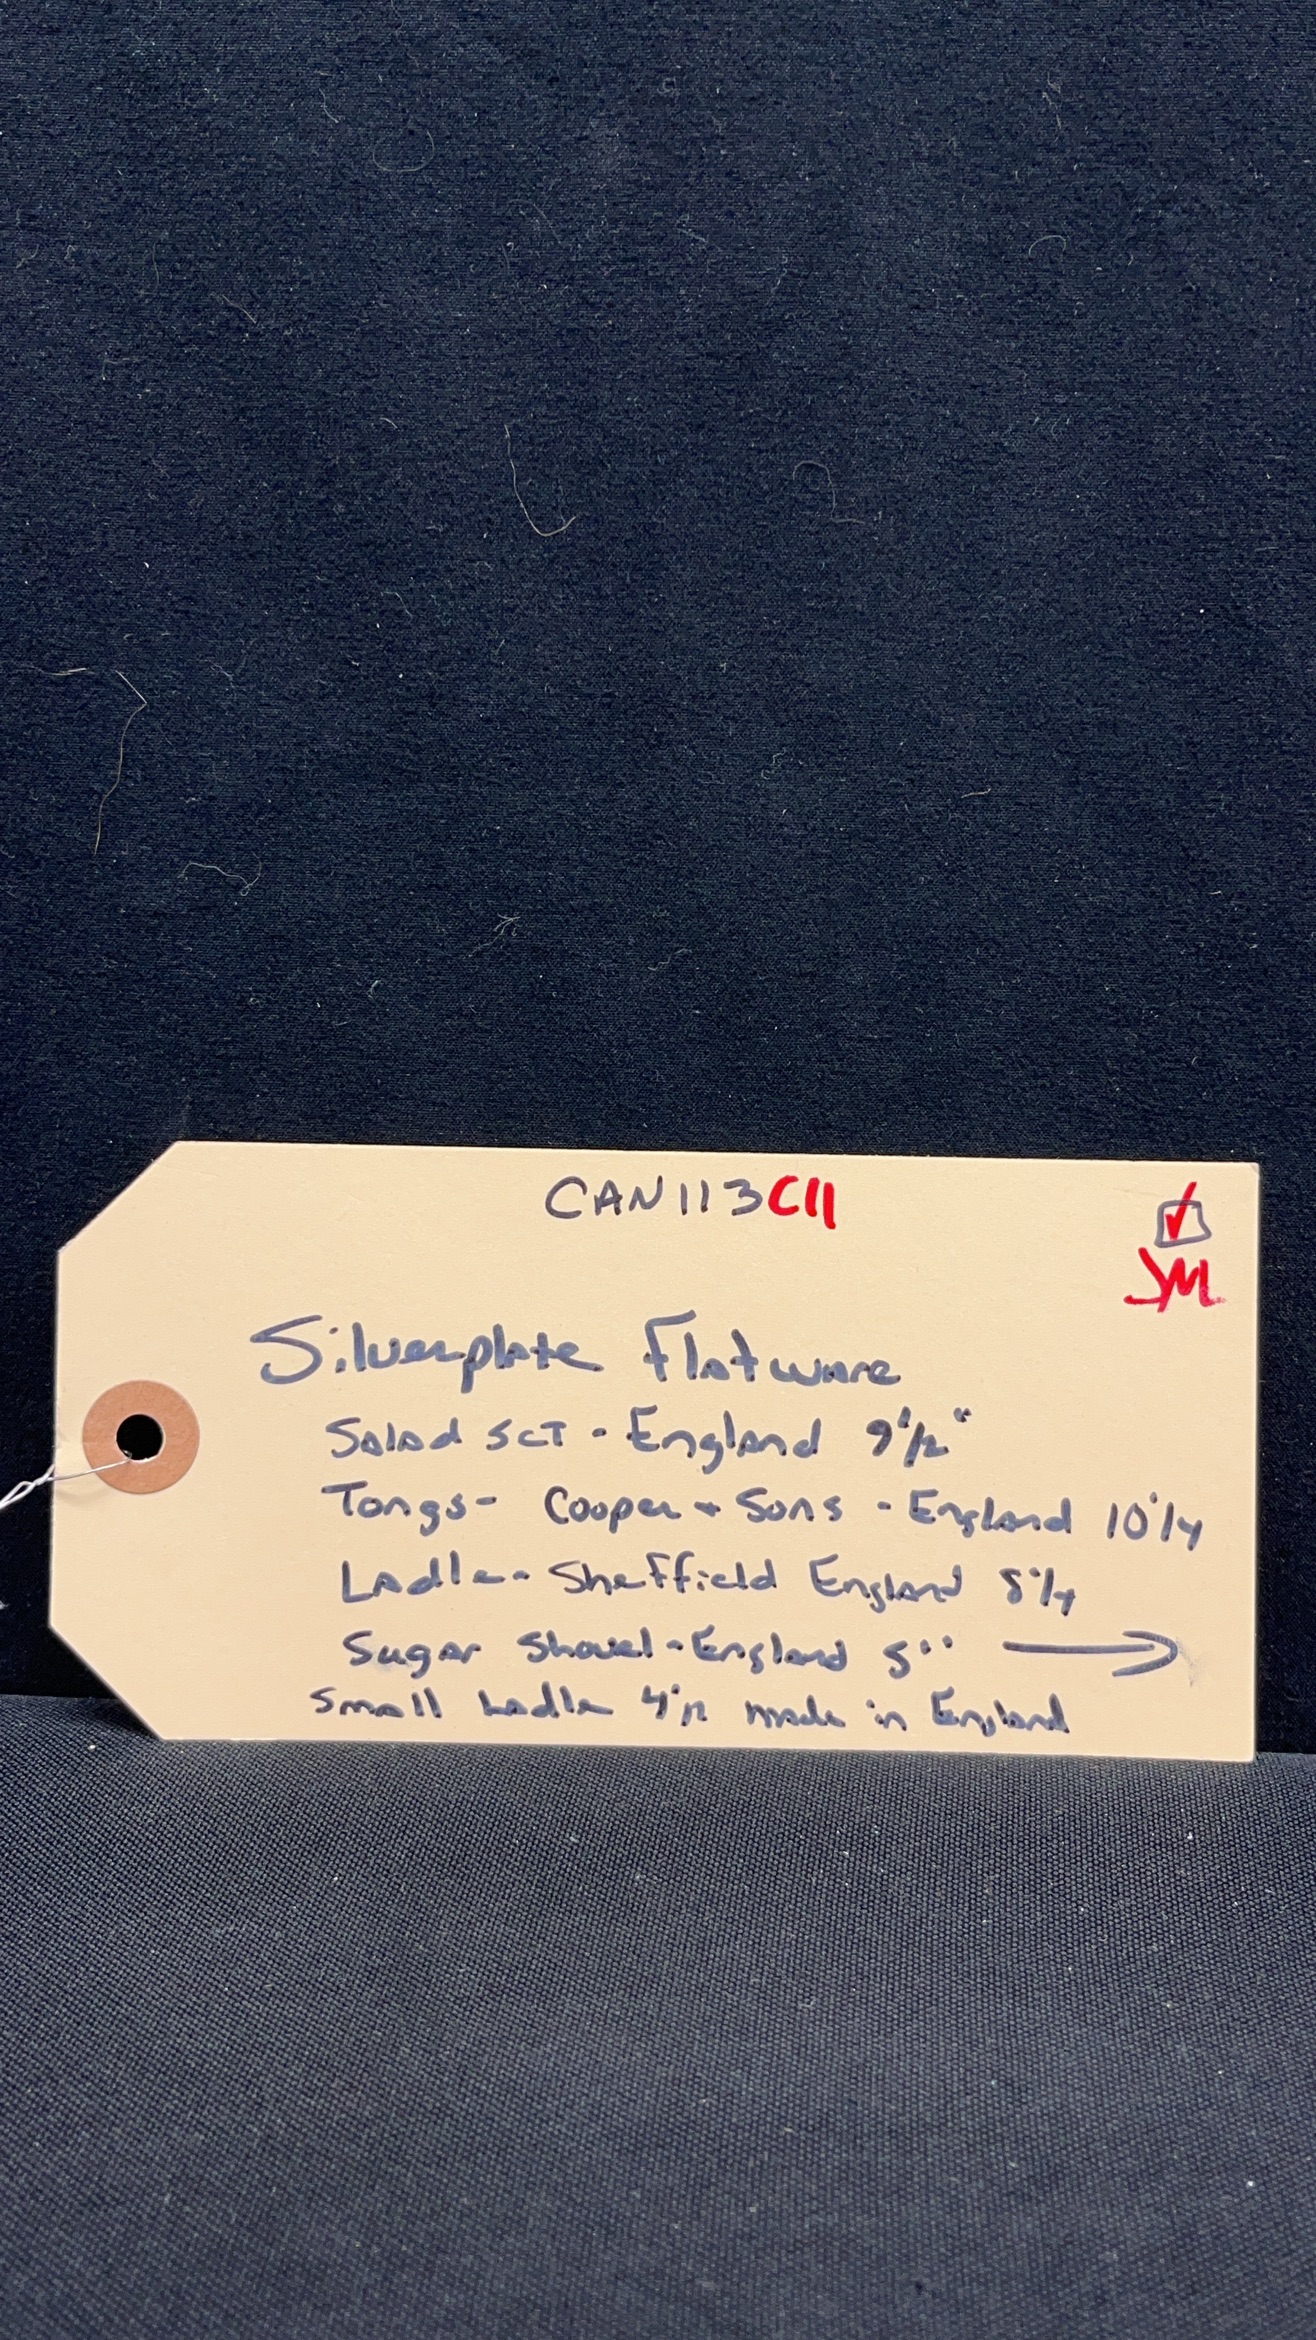 CAN113C11
✓
JM
Silverplate Flatware
Salad SET - England 9 1/2"
Tongs - Cooper + Sons - England 10 1/4
Ladle - Sheffield England 8 1/4
Sugar Shovel - England 5" →
Small Ladle 4 1/2 made in England